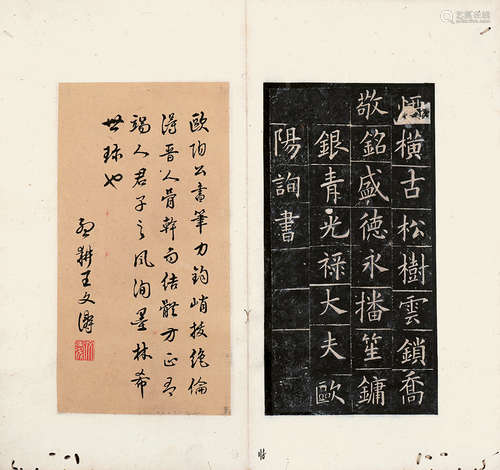 橫古松樹雲鎖喬
敬銘盛德永播笙鏞
銀青光祿大夫歐
陽詢書
歐陽公書筆力鈞峭拔絕倫
得晉人骨幹而結體方正有
端人君子之風洵墨林希
世珍也
耕王文濤